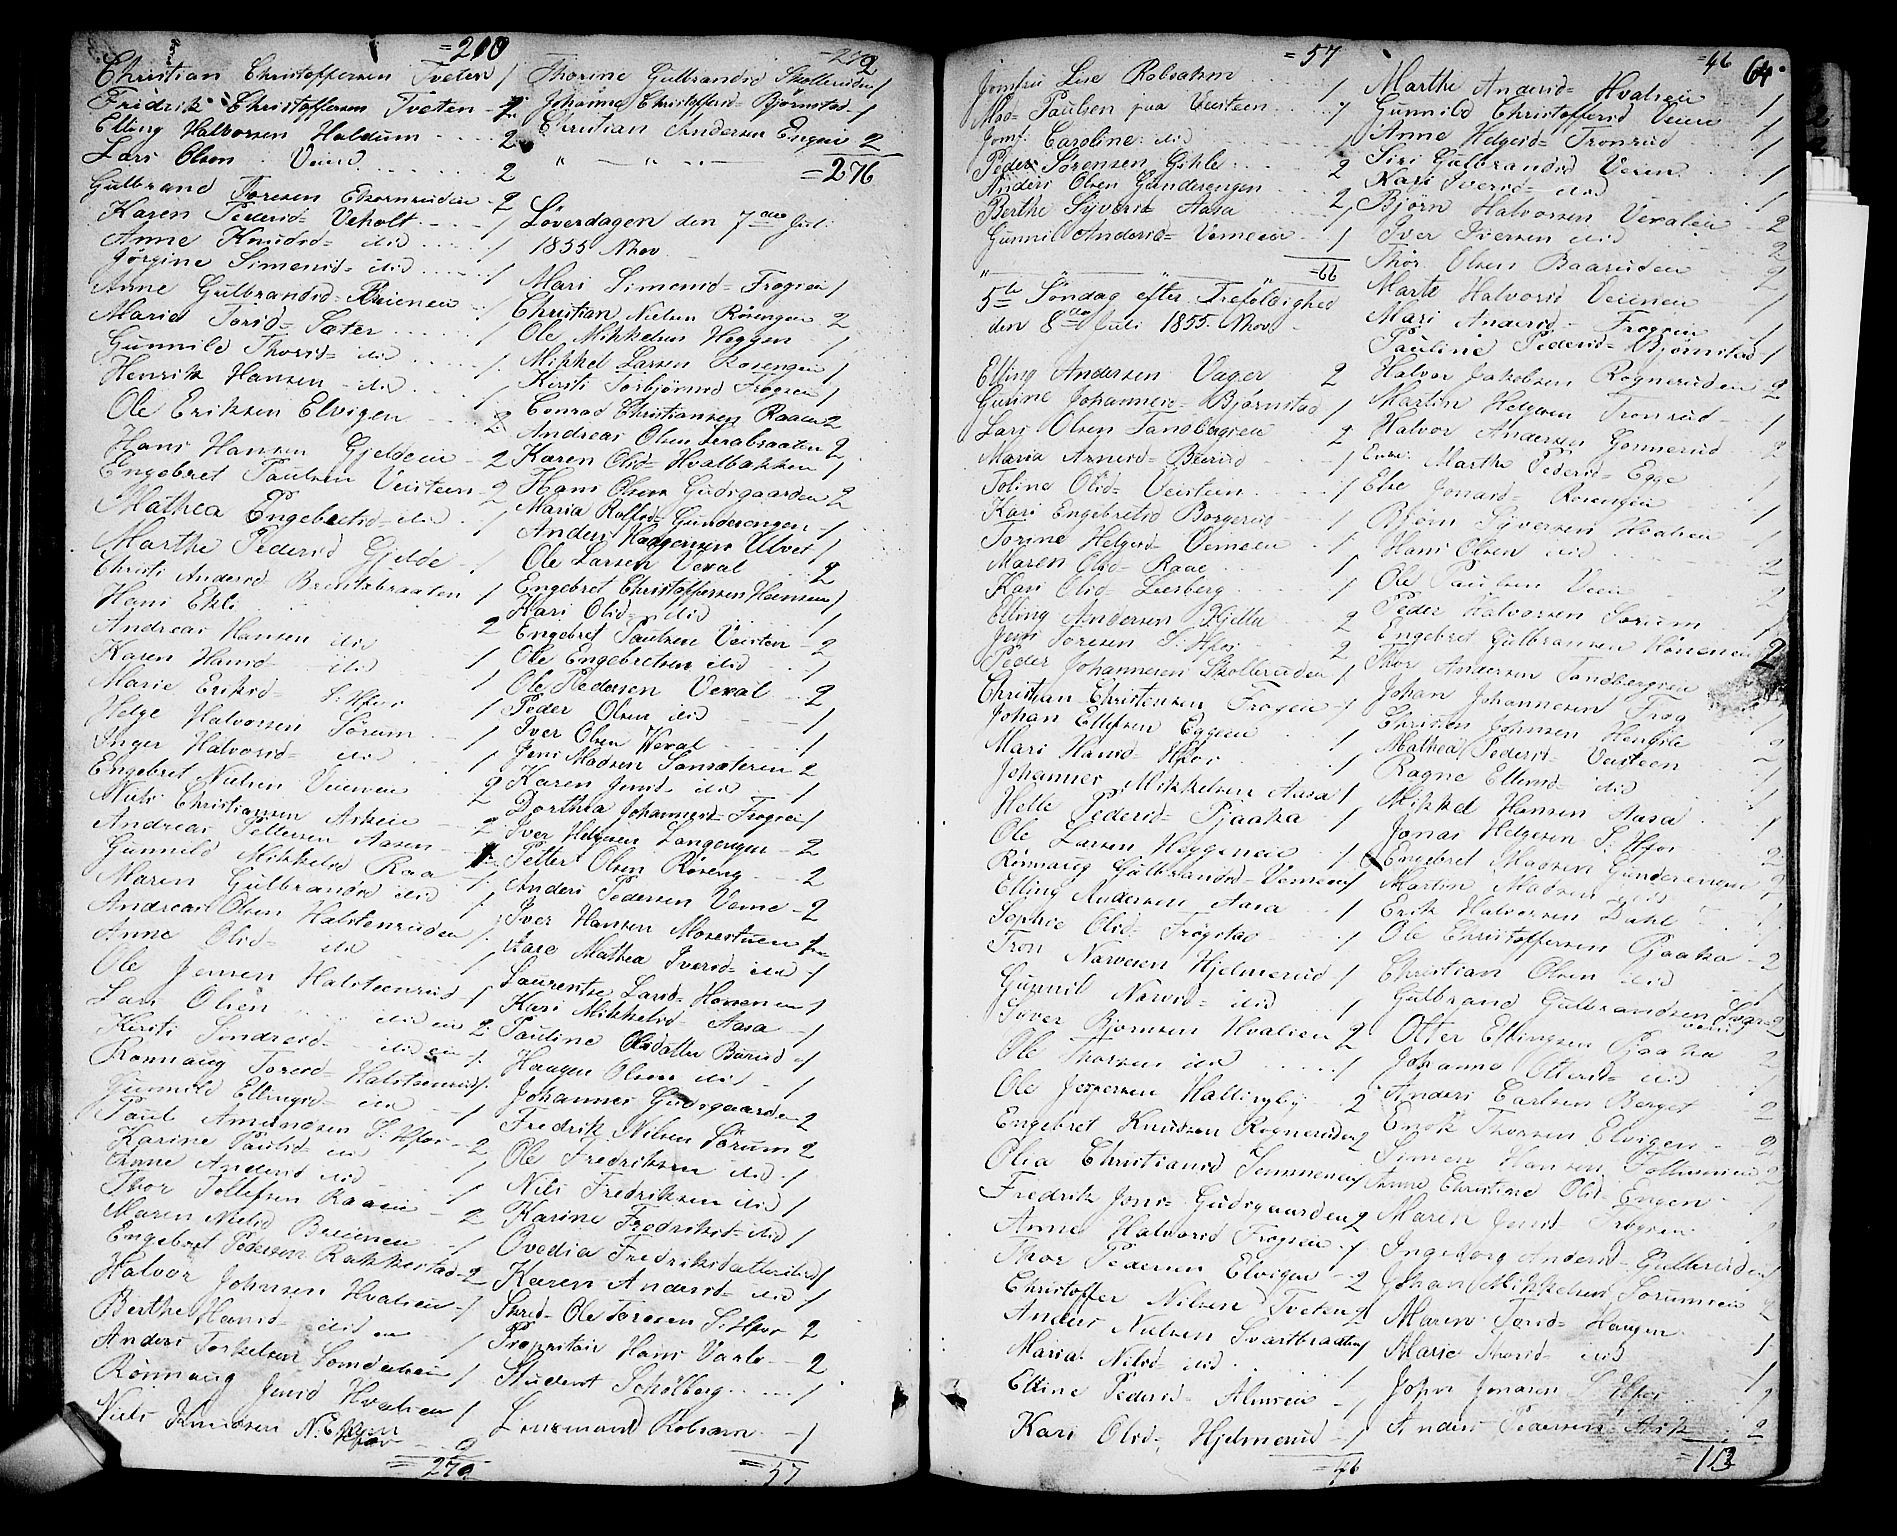 =210
Christian Christoffersen Tveten /
Fredrik Christoffersen Tveten
Elling Halvorsen Haldum 2
Lars Olsen Veien 2
Gulbrand Toresen 2
Karen Pedersd= Veholt /
Anne Knudsd= /
Jørgine Simensd= /
Anne Gulbrandsd= Breienen /
Maria Torsd= Sæter /
Gunnild Thorsd= /
Henrik Hansen /
Ole Eriksen Elvigen 2
Hans Hansen Gjeldeie 2
Engebret Paulsen Veisteen 2
Mathea Engebretsd= /
Marthe Pedersd Gjelde /
Christi Andersd Brentebraaten /
Hans Ekli 2
Andreas Hansen /
Karen Hansd= /
Marie Eriksd= S: Hfos /
Helge Halvorsen Sørum /
Inger Halvorsd= /
Engebret Nielsen Veienen 2
Niels Christiansen Askeie 2
Andreas Pettersen Aasen
Gunnild Mikkelsd Raa /
Maren Gulbrandsd /
Andreas Olsen Halstenruden /
Anne Olsd= /
Ole Jensen Halstenrud /
Lars Olsen 2
Kersti Sindresd= /
Rønnaug Toresd= Halstenrud /
Gunnild Ellingsd= /
Paul Amundsen S: Hfos 2
Karine Paulsd= /
Anne Andersd /
Thor Tollefsen Raaeie 2
Maren Nielsd Breienen /
Engebret Pedersen Rakkestad 2
Halvor Johnsen Hvalseie /
Berthe Hansd= /
Anders Torkelsen Somdaleie /
Rønnaug Jensd Hvalseie /
Niels Knudsen N. Hfos 2
=272
=272
Thorine Gulbrandsd Skollerud /
Johanna Christoffersd= Bjørnstad /
Christian Andersen Engeie 2
=276
Løverdagen den 7de Juli
1855 Nhov
Mari Simensd= Frogeie /
Christian Nielsen Røsengen 2
Ole Mikkelsen Heggen /
Mikkel Larsen Rosengen /
Kersti Torbjørnsd Frogeie /
Conrad Christiansen Raaen 2
Andreas Olsen 2
Karen Olsd= Hvalbakken /
Hans Olsen Gudsgaarden 2
Maria Rolfsd= Gunderengen /
Anders Haagensen Ulver /
Ole Larsen Vexal 2
Engebret Christoffersen Hønen /
Kari Olsd= /
Engebret Paulsen Veisten 2
Ole Engebretsen /
Ole Pedersen Vexal 2
Peder Olsen /
Iver Olsen Wexal /
Jens Madsen Somsæteren 2
Karen Jensd= /
Dorthea Johannesd= Frogeie /
Iver Helgesen Langengen 2
Petter Olsen Røseng 2
Anders Pedersen Veme 2
Iver Hansen Mosestuen
Aase Mathea Iversd= /
Laurentse Larsd= Hønen /
Kari Mikkelsd= Aasa /
Pauline Olsdatter Bærud /
Haagen Olsen /
Johannes Gudsgaarden 2
Fredrik Nilsen Sørum 2
Ole Fredriksen /
Nils Fredriksen /
Karine Fredriksd= /
Ovedia Fredriksdatter /
Karen Andersd= /
Skræd= Ole Toresen S: Hfos 2
Proprietair Hans Varlo 2
Student Schølberg /
Lensmand Robsahm /
=57
=57
Jomfru Lise Robsahm /
Mad= Paulsen paa Veisteen /
Jomf: Caroline /
Peder Sørensen Gihle 2
Anders Olsen Gunderengen 2
Berthe Syversd= Aasa /
Gunnil Andersd= Vemeeie /
=66
5te Søndag efter Trefoldighed
den 8de Juli 1855. Nhov
Elling Andersen Vager 2
Gurine Johannesd= Bjørnstad /
Lars Olsen Tandbergeie 2
Maria Arnesd= Bærud /
Toline Olsd= Veisteen /
Kari Engebretsd Borgerud /
Torine Helgesd= Vemeeie /
Maren Olsd= Raae /
Kari Olsd= Lesberg /
Elling Andersen Kjelle 2
Jens Toresen S: Hfos 2
Peder Johannesen Skolleruden /
Christian Christensen Frogeie /
Johan Ellefsen Eggeie /
Mari Hansd= Hfos /
Johannes Mikkelsen Aasa /
Helle Pedersd= Pjaaka /
Ole Larsen Heggeneie /
Rønnaug Gulbrandsd= Vemeeie /
Elling Andersen Aasa /
Sophie Olsd= Frøgstad /
Tron Narvesen Hjelmerud /
Gunnil Narvesd= /
Syver Bjørnsen Hvalseie 2
Ole Thorsen /
Ole Jespersen Hallingby 2
Engebret Knudsen Rogneruden 2
Olea Christiansd Semmeneie /
Fredrik Jons= Gudsgaarden 2
Anne Halvorsd Frogeie /
Thor Pedersen Elvigen 2
Christoffer Nilsen Tveten 2
Anders Nielsen Svartbraaten /
Maria Nilsd= /
Elline Pedersd= Almeie /
Kari Olsd= Hjelmerud /
=46
=46
64.
Marthe Andersd= Hvalseie /
Gunnild Christoffersd Veien /
Anne Helgesd= Tronrud /
Siri Gulbrandsd Veien /
Kari Iversd= /
Bjørn Halvorsen Vexaleie 2
Iver Iversen 2
Thor Olsen Baaruden 2
Marte Halvorsd Veienen /
Mari Andersd= Frogeie /
Pauline Pedersd= Bjørnstad /
Halvor Jakobsen Rogneruden 2
Martin Helgesen Tronrud /
Halvor Andersen Gonnerud 2
Enke. Marthe Pedersd= Egge /
Else Jonasd= Rosengeie /
Bjørn Syversen Hvalseie /
Hans Olsen 2
Ole Paulsen Veien 2
Peder Halvorsen Sørum /
Engebret Gulbransen Høneneie 2
Thor Andersen Tandbergeie
Johan Johannesen Frog /
Christen Johnsen Hensrle 2
Mathea Pedersd= Veisteen /
Ragne Ellensd= /
Mikkel Hansen Aasa /
Jonas Helgesen S: Hfos 2
Engebret Madsen Gunderengen 2
Martin Madsen /
Erik Halvorsen Dahl /
Ole Christoffersen Pjaaka 2
Christian Olsen /
Gulbrand Gulbrandsen 2
Otter Ellingsen Pjaaka 2
Johanne Ottersd= /
Anders Carlsen Berget 2
Enok Thorsen Elvigen 2
Simen Hansen 2
Anne Christine Olsd= Engen /
Maren Jensd Frogeie /
Ingeborg Andersd= Gulleruden /
Johan Mikkelsen Sørumeie 2
Maren Torsd= Haugen /
Marie Thorsd= /
Johan Jonasen S: Hfos 2
Anders Pedersen Ask 2
=113